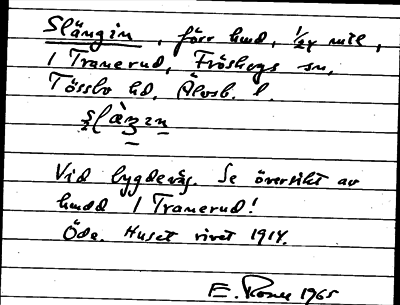 Slängin, förr hmd, 1/24 mtl,
i Tranerud, Fröskogs sn,
Tössbo hd, Älvsb. l.
slàŋin
Vid bygdeväg. Se översikt av
hmdd i Tranerud!
Öde. Huset rivet 1914.
E. 1965